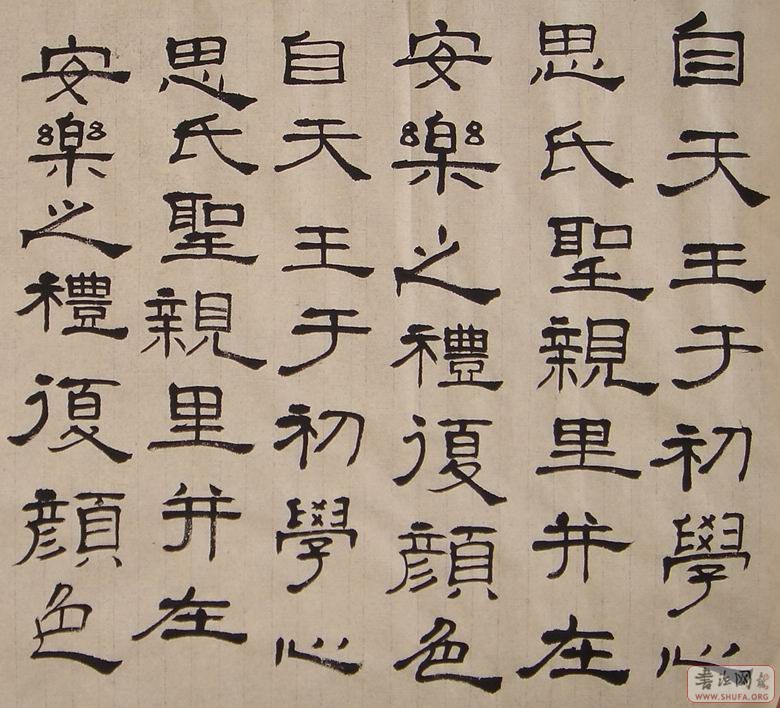 自天王于初學心
思氏聖親里并在
安樂之禮復顏色
自天王于初學心
思氏聖親里并在
安樂之禮復顏色
書法网
WWW.SHUFA.ORG